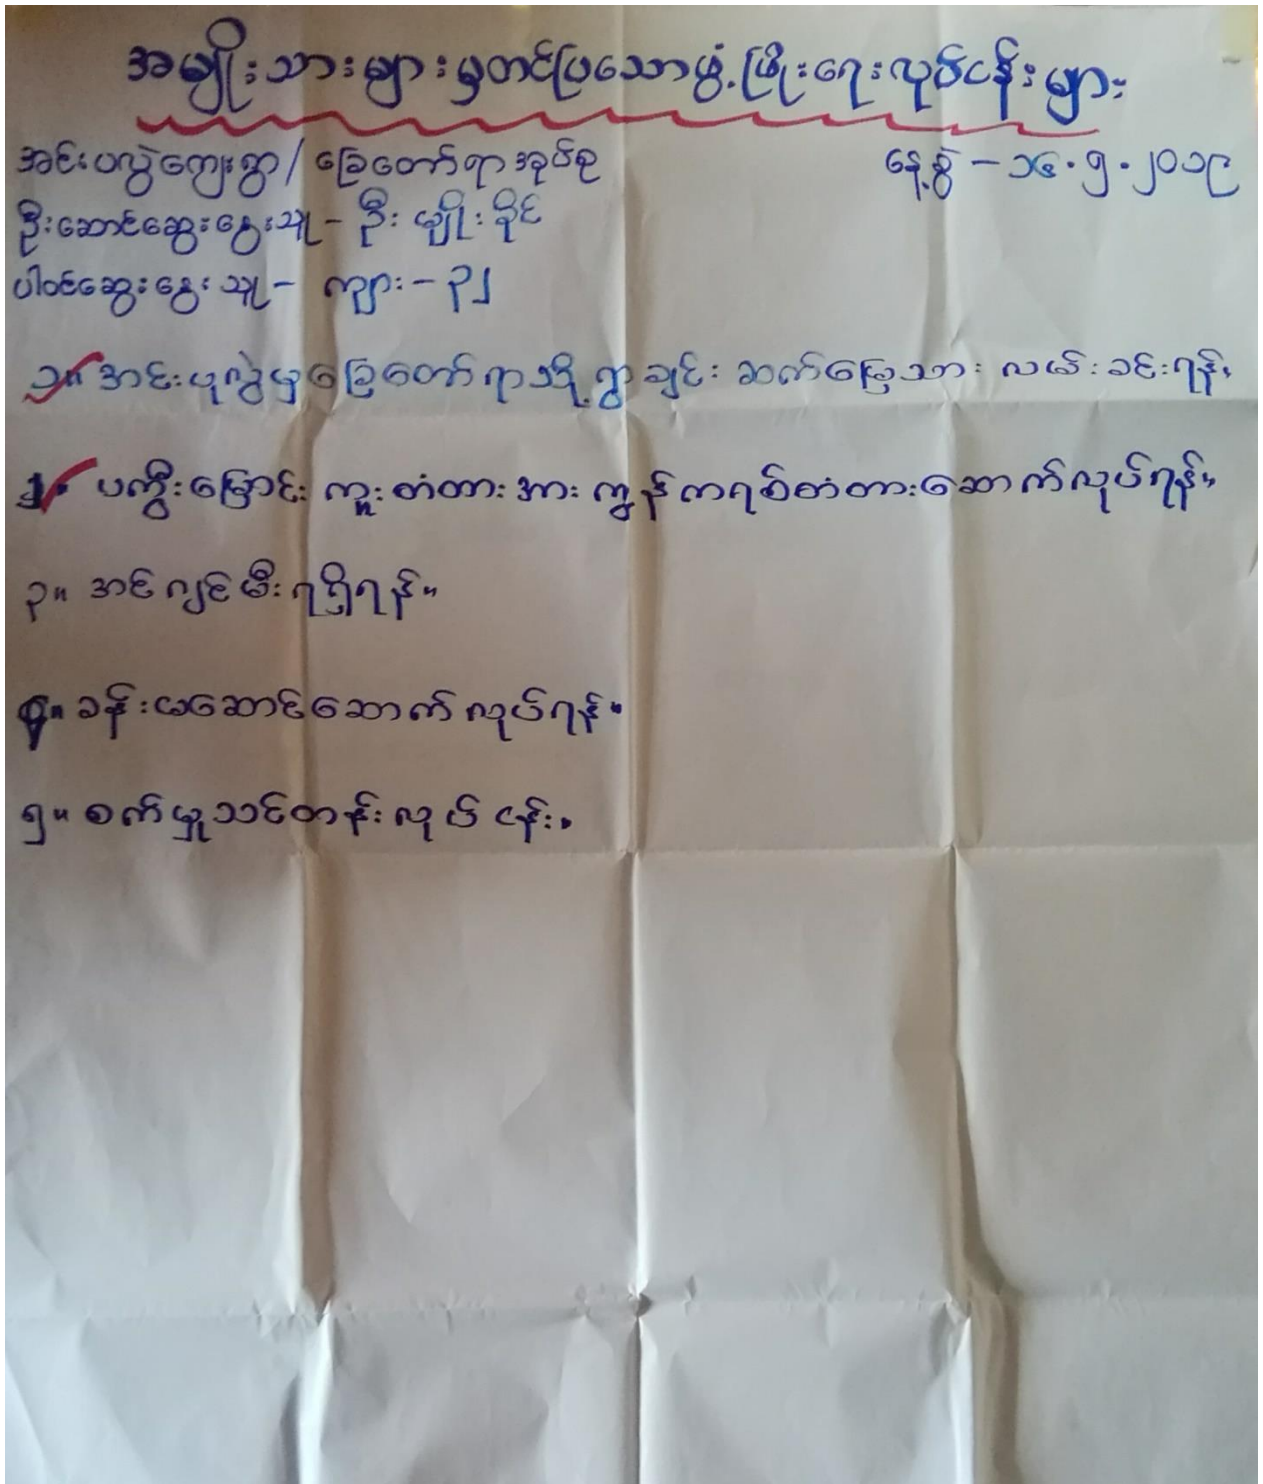 အမျိုးသားများမှတင်ပြသောဖွံ့ဖြိုးရေးလုပ်ငန်းများ
အင်းပလွဲကျေးရွာ/ ခြေတော်ရာအုပ်စု
နေ့စွဲ - ၁၄.၅.၂၀၁၉
ဦးဆောင်ဆွေးနွေးသူ - ဦးမျိုးခိုင်
ပါဝင်ဆွေးနွေးသူ - ကျား - ၃၂
၁။ အင်းပလွဲမှခြေတော်ရာသို့ ရွာချင်းဆက်မြေသားလမ်းခင်းရန်။
၂။ ပကွီးမြောင်းကူးတံတားအားကွန်ကရစ်တံတားဆောက်လုပ်ရန်။
၃။ အင်ဂျင်မီးရရှိရန်။
၄။ ခန်းမဆောင်ဆောက်လုပ်ရန်။
၅။ စက်မှုသင်တန်းလုပ်ငန်း။